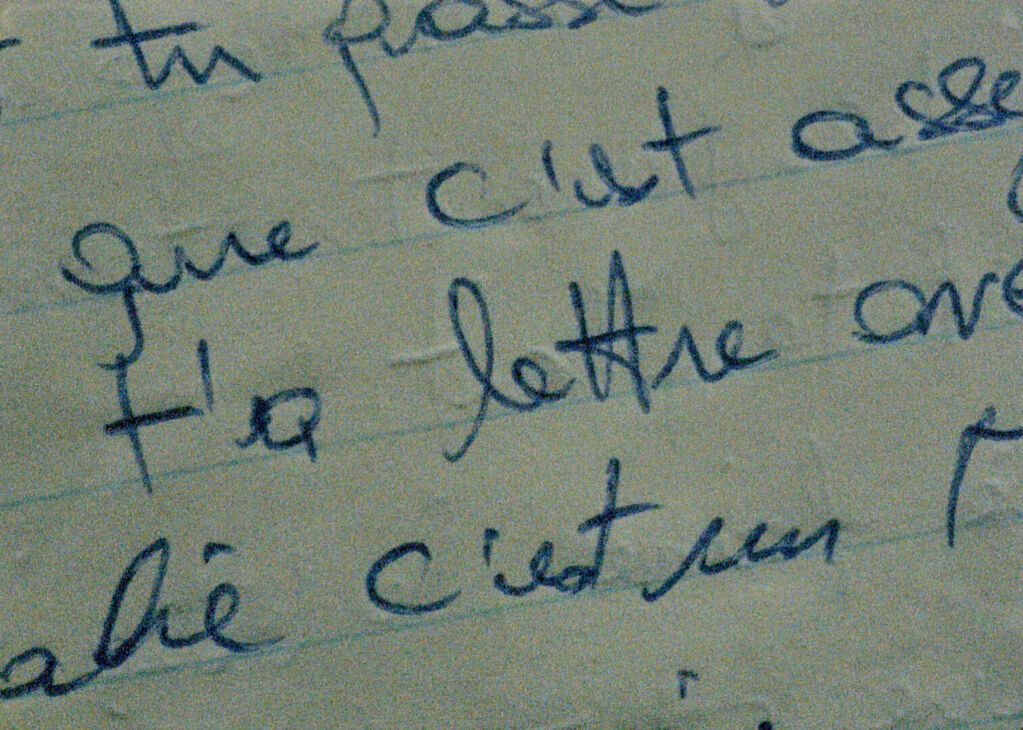 tu passe
que c'est asse
t'a lettre ave
alié c'est un